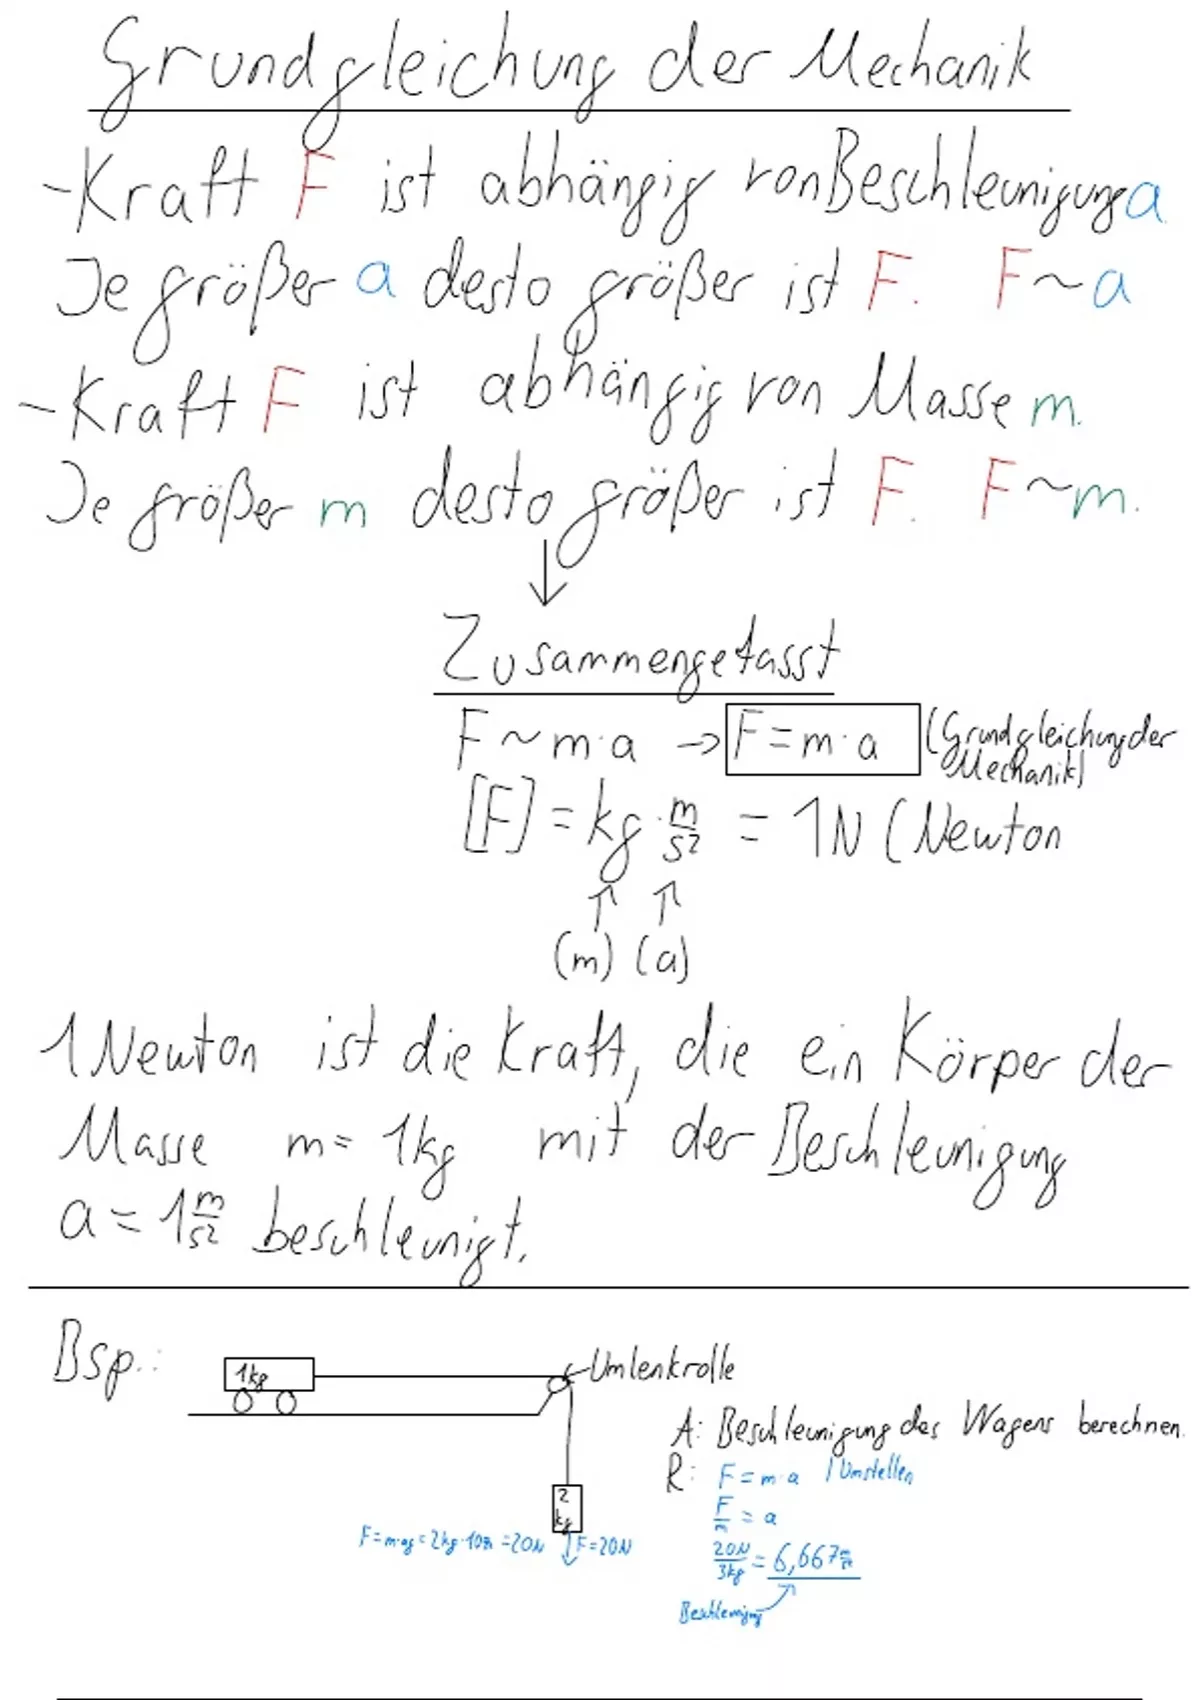 Grundgleichung der Mechanik
-Kraft F ist abhängig von Beschleunigung a.
Je größer a desto größer ist F. F~a
-Kraft F ist abhängig von Masse m.
Je größer m desto größer ist F. F~m.
Zusammengefasst
F~m·a → F=m·a (Grundgleichung der
Mechanik)
[F]=kg·m/s² = 1N (Newton
(m) (a)
1 Newton ist die Kraft, die ein Körper der
Masse m= 1kg mit der Beschleunigung
a=1m/s² beschleunigt.
Bsp.:
1kg
Umlenkrolle
A: Beschleunigung des Wagens berechnen.
R: F=m·a | Umstellen
F/m = a
2kg
F=20N
20N/3kg = 6,667 m/s²
Beschleunigung